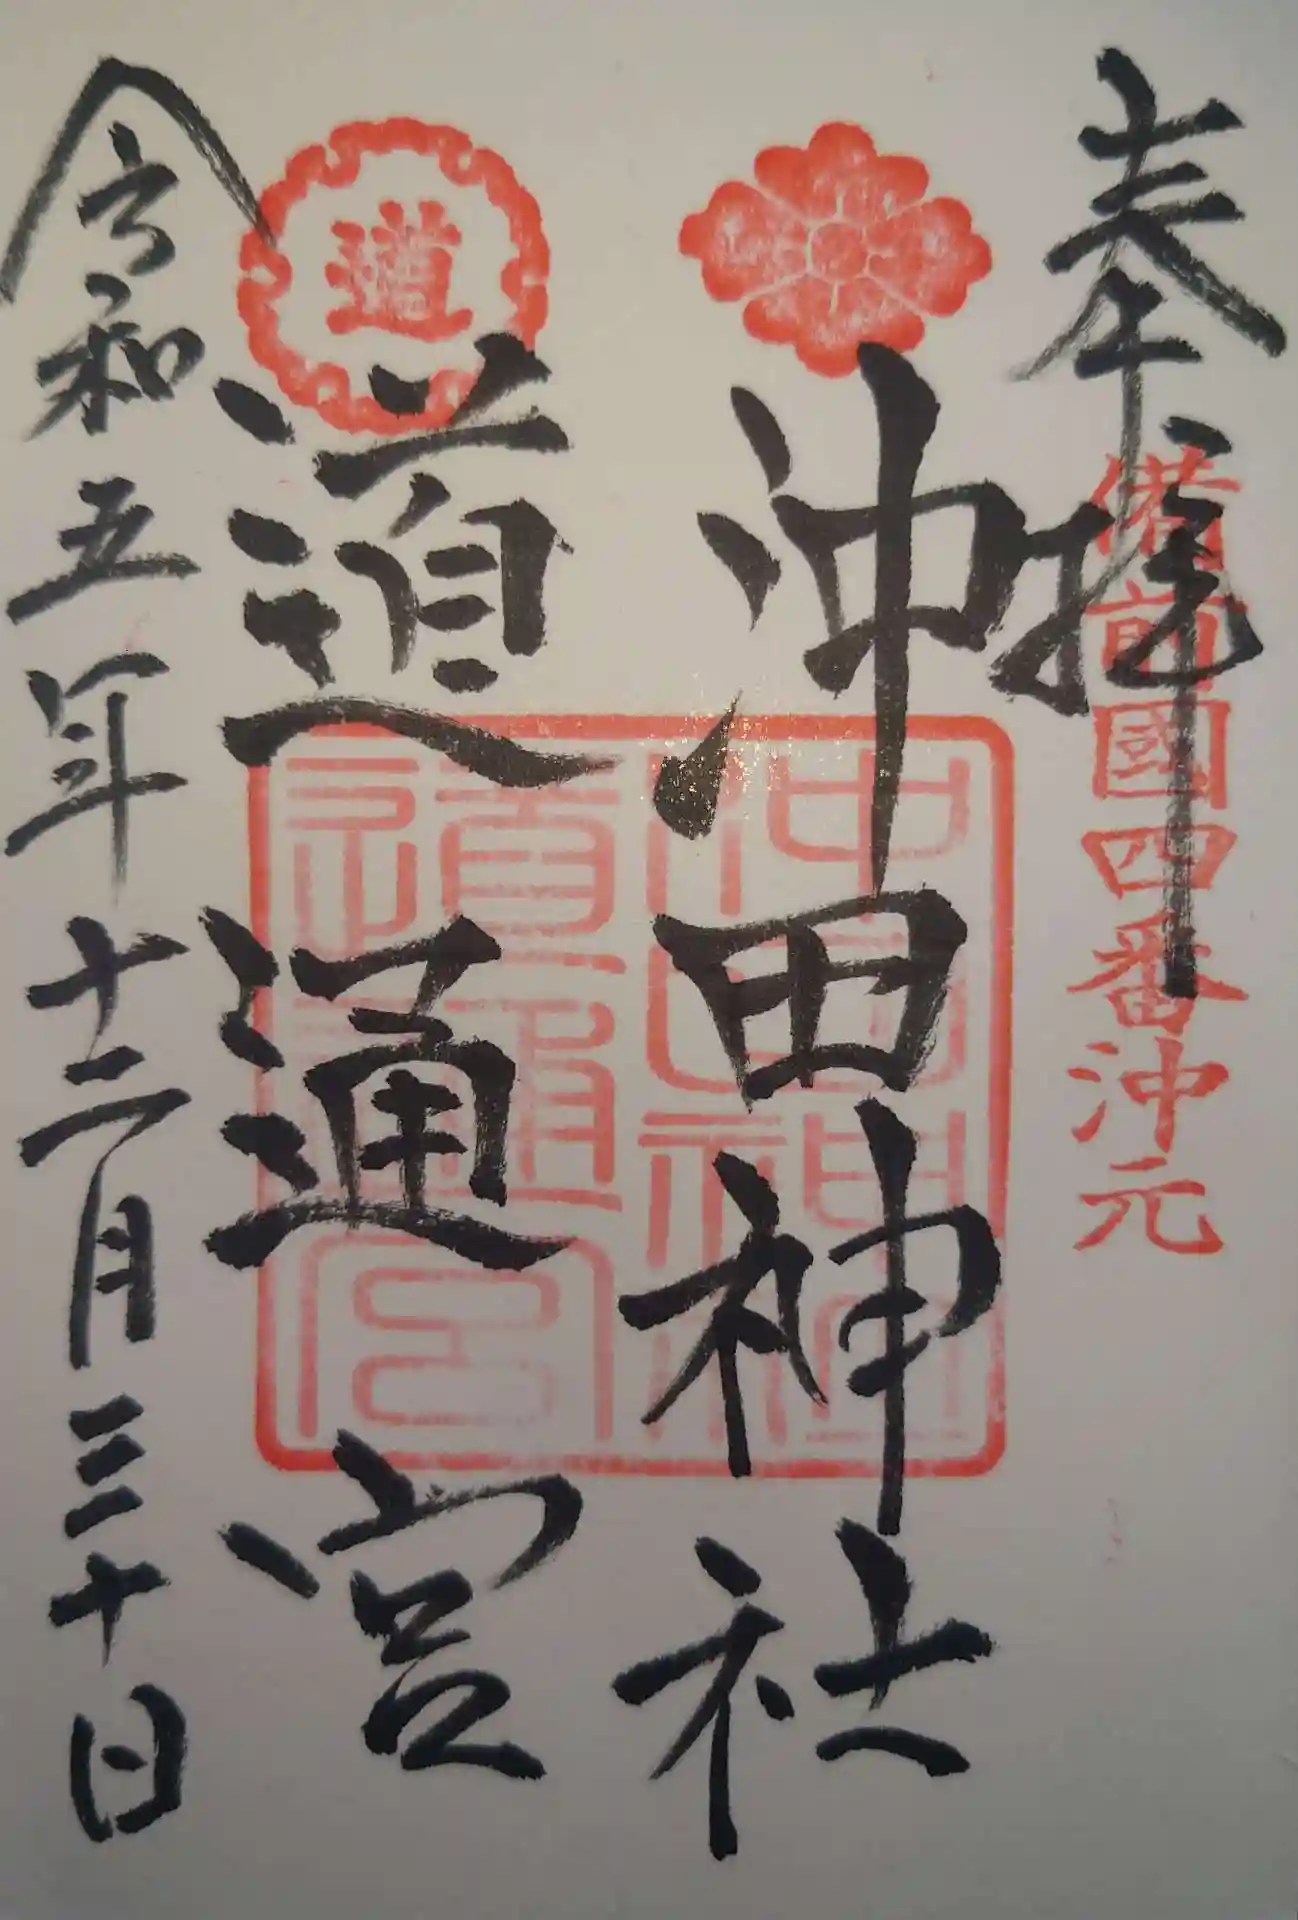 奉拝
備前國四番沖元
沖田神社
道通宮
令和五年十二月三十日
道
沖田神社
道通宮